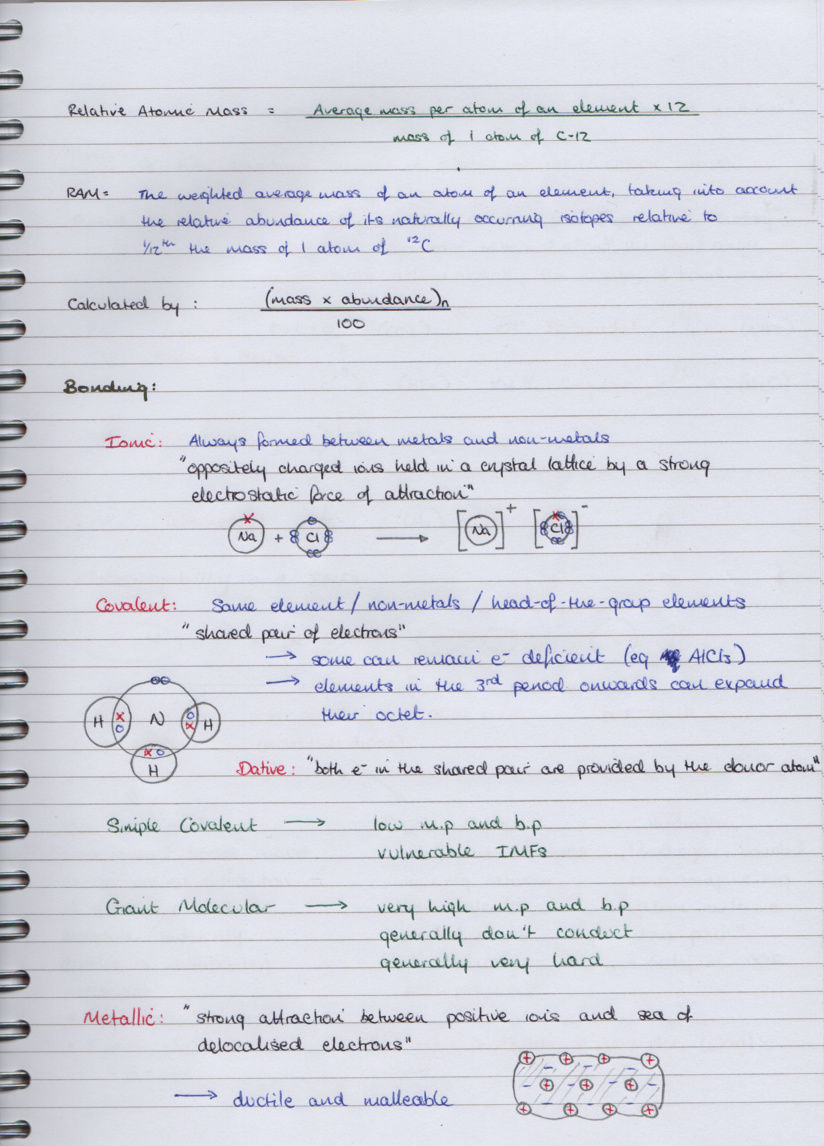 Relative Atomic Mass = Average mass per atom of an element × 12
mass of 1 atom of C-12
RAM = The weighted average mass of an atom of an element, taking into account
the relative abundance of its naturally occurring isotopes relative to
1/12th the mass of 1 atom of ¹²C
Calculated by : (mass × abundance)n
100
Bonding:
Ionic: Always formed between metals and non-metals
"oppositely charged ions held in a crystal lattice by a strong
electrostatic force of attraction"
Na + Cl → [Na]⁺ [Cl]⁻
Covalent: Same element / non-metals / head-of-the-group elements
"shared pair of electrons"
→ some can remain e⁻ deficient (eg AlCl₃)
→ elements in the 3rd period onwards can expand
their octet.
H N H
H
Dative: "both e⁻ in the shared pair are provided by the donor atom"
Simple Covalent → low m.p and b.p
vulnerable IMFs
Giant Molecular → very high m.p and b.p
generally don't conduct
generally very hard
Metallic: "strong attraction between positive ions and sea of
delocalised electrons"
+ + + +
- + - + - + -
+ + + +
→ ductile and malleable